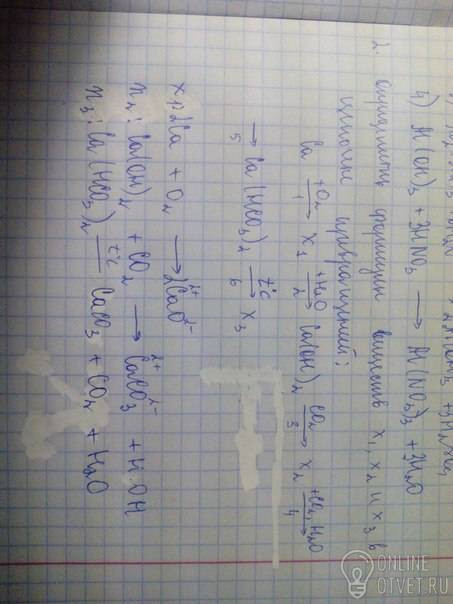 4) Al(OH)₃ + 3HNO₃ → Al(NO₃)₃ + 3H₂O
2. Определить формулы веществ x₁, x₂ и x₃ в
цепочке превращений:
Ca —+O₂/1→ x₁ —+H₂O/2→ Ca(OH)₂ —CO₂/3→ x₂ —+CO₂, H₂O/4→
—5→ Ca(HCO₃)₂ —t°C/6→ x₃
x₁: 2Ca + O₂ → 2Ca²⁺O²⁻
x₂: Ca(OH)₂ + CO₂ → Ca²⁺CO₃²⁻ + H·OH
x₃: Ca(HCO₃)₂ —t°C— CaCO₃ + CO₂ + H₂O
ONLINE
OTVET.RU